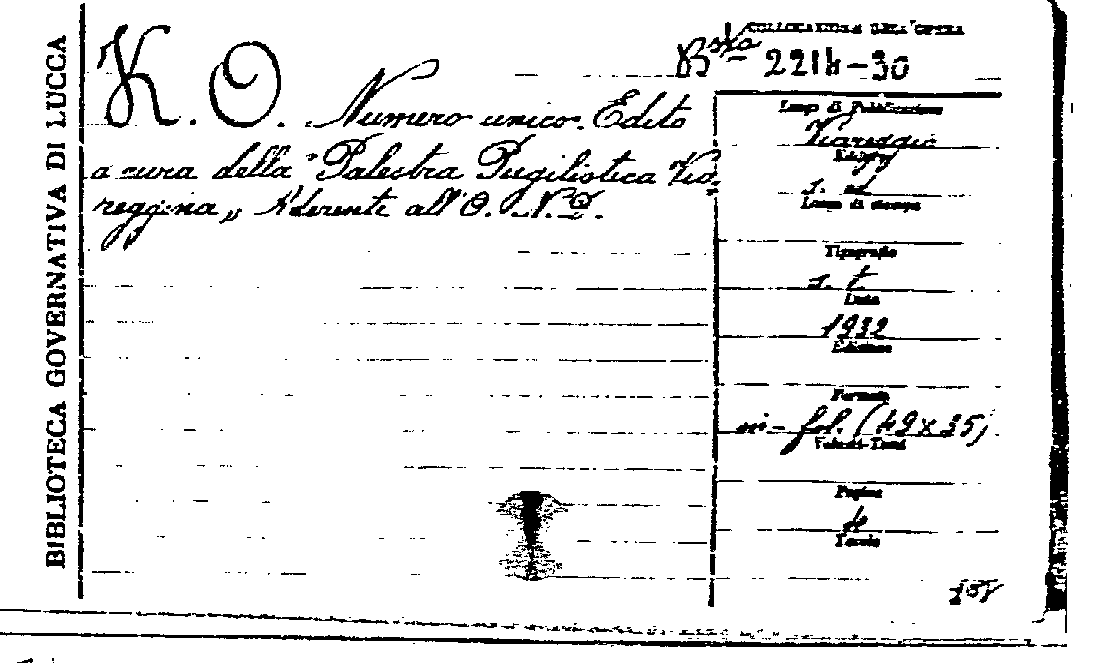 BIBLIOTECA GOVERNATIVA DI LUCCA
K. O. Numero unico. Edito
a cura della "Palestra Pugilistica Via-
reggina„ Aderente all'O. N. D.
COLLOCAZIONE DELL'OPERA
Bsta 221b-30
Luogo di Pubblicazione
Viareggio
Editore
s. ed
Luogo di stampa
Tipografia
s. t.
Data
1932
Edizione
Formato
in-fol. (49x35)
Volumi-Tomi
Pagine
Tavole